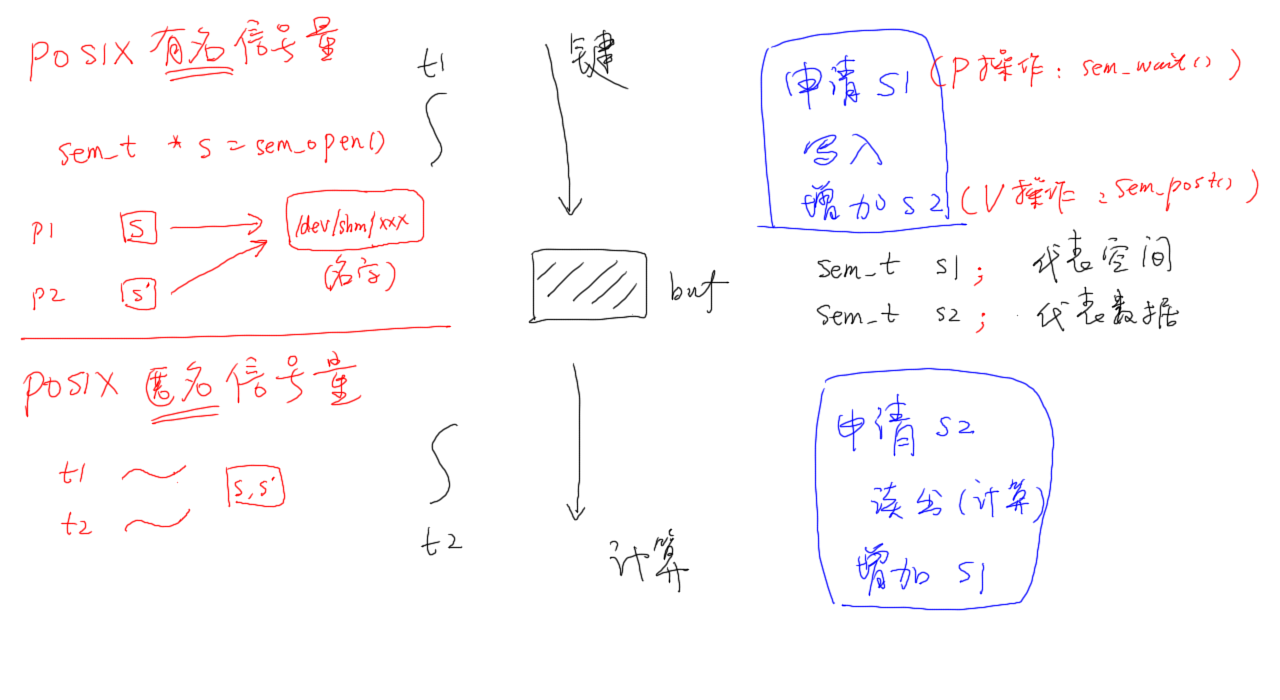 POSIX 有名信号量
sem_t * s = sem_open()
p1 S /dev/shm/xxx
p2 S' (名字)
POSIX 匿名信号量
t1 S,S'
t2
t1
键
buf
t2
计算
申请 S1 (P操作: sem_wait())
写入
增加 S2 (V操作: sem_post())
sem_t s1; 代表空间
sem_t s2; 代表数据
申请 S2
读出(计算)
增加 S1